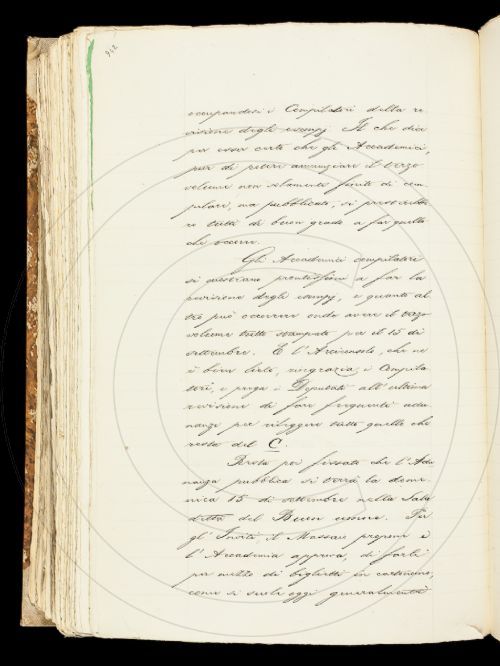 942
occupandosi i Compilatori della re
visione degli esempj. Il che dice
per esser certo che gli Accademici,
pur di poter annunziare il terzo
volume non solamente finito di com.
pilare, ma pubblicato, si
ro tutti di buon grado a far quello
che occorre.
Gli Accademici compilatori
si mostrano prontissimi a far la
revisione degli esempj, e quanto al
tro può occorrere onde avere il terzo
volume tutto stampato per il 15 di
settembre. E l'Arciconsolo, che ne
è ben lieto, ringrazia i Compila
tori, e prega i Deputati all'ultima
revisione di fare frequenti adu
nanze per rileggere tutto quello che
resta del C.
Resta poi fissato che l'Adu
nanza pubblica si terrà la dome
nica 15 di settembre nella Sala
detta del Buon umore. Per
gl'Inviti il Massaio propone e
l'Accademia approva, di farli
per mezzo di biglietti in cartoncino,
come si suole oggi generalmente